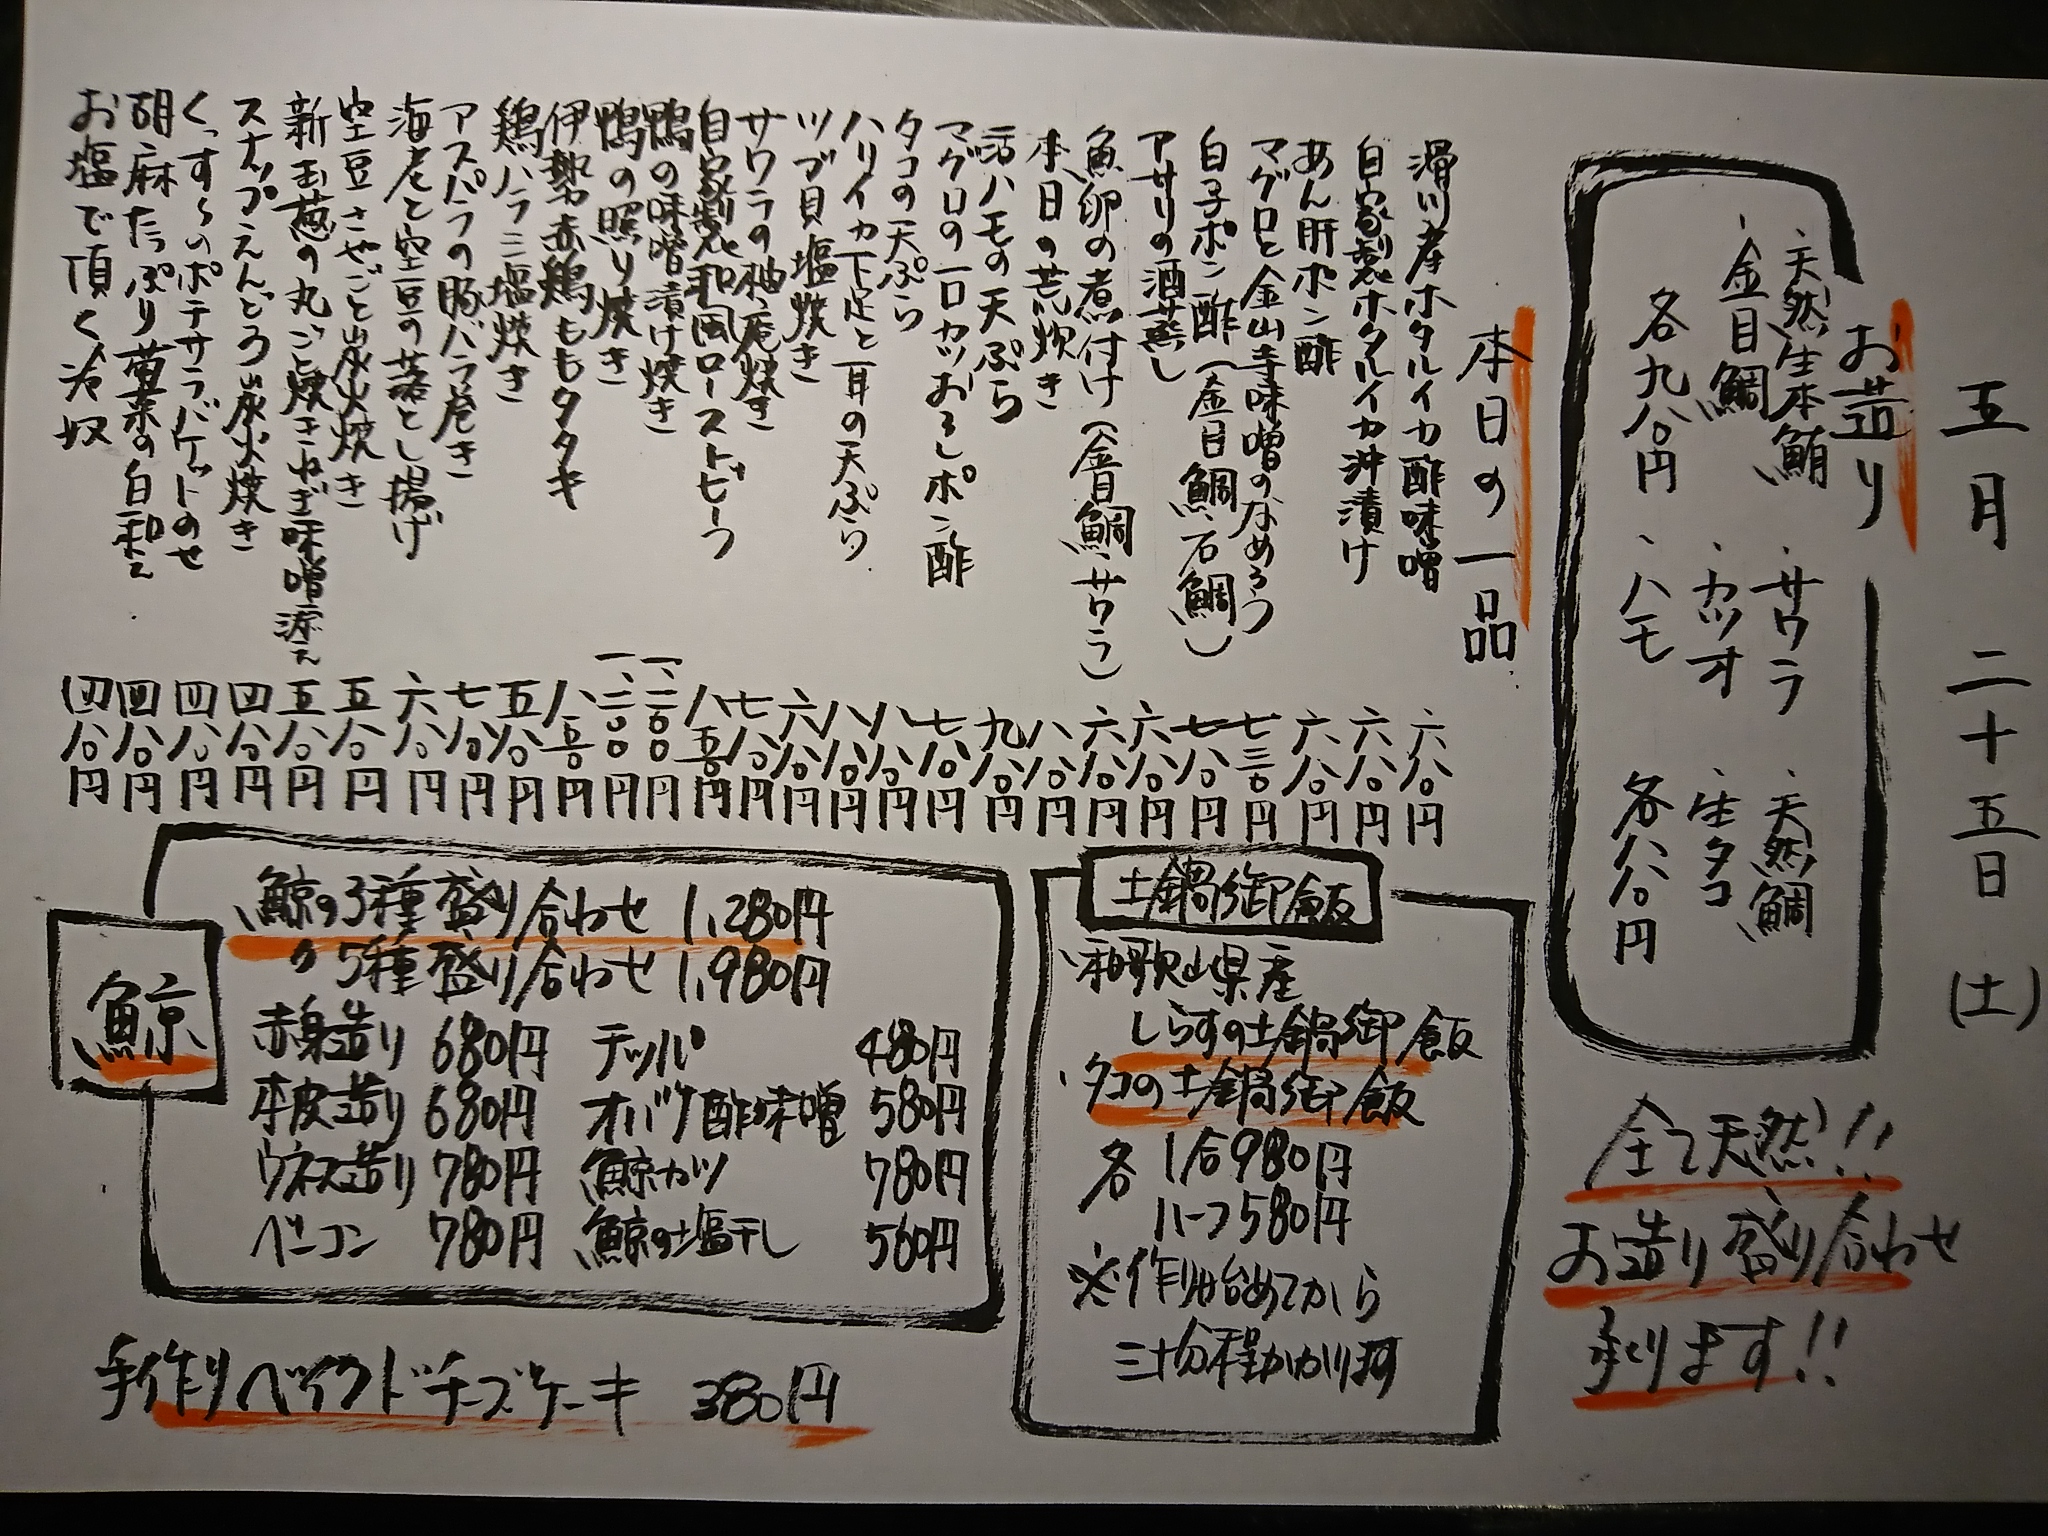 五月 二十五日 (土)
お造り
・天然生本鮪 ・サワラ ・天然鯛
・金目鯛 ・カツオ ・生タコ
各九八〇円 ・ハモ 各八八〇円
全て天然!!
お造り盛り合わせ
承ります!!
本日の一品
滑川産ホタルイカ酢味噌 六八〇円
自家製ホタルイカ沖漬け 六八〇円
あん肝ポン酢 六八〇円
マグロと金山寺味噌のなめろう 七三〇円
白子ポン酢(金目鯛、石鯛) 七八〇円
アサリの酒蒸し 六八〇円
魚卵の煮付け(金目鯛、サワラ) 六八〇円
本日の荒炊き 八八〇円
活ハモの天ぷら 九八〇円
マグロの一口カツおろしポン酢 七八〇円
タコの天ぷら 八八〇円
ハリイカ下足と耳の天ぷら 八八〇円
ツブ貝塩焼き 六八〇円
サワラの柚庵焼き 七八〇円
自家製和風ローストビーフ 八五〇円
鴨の味噌漬け焼き 一、二〇〇円
鴨の照り焼き 一、二〇〇円
伊勢赤鶏ももタタキ 八五〇円
鶏ハラミ塩焼き 五八〇円
アスパラの豚バラ巻き 七八〇円
海老と空豆の落とし揚げ 六八〇円
空豆さやごと炭火焼き 五八〇円
新玉葱の丸ごと焼きねぎ味噌添え 五八〇円
スナップえんどう炭火焼き 四八〇円
くっすらのポテサラバケットのせ 四八〇円
胡麻たっぷり菊菜の白和え 四八〇円
お塩で頂く冷奴 四八〇円
土鍋御飯
・和歌山県産
しらすの土鍋御飯
・タコの土鍋御飯
各 1合980円
ハーフ580円
※作り始めてから
三十分程かかります
鯨
鯨の3種盛り合わせ 1,280円
〃 5種盛り合わせ 1,980円
赤身造り 680円 テッパ 480円
本皮造り 680円 オバケ酢味噌 580円
ウネス造り 780円 鯨カツ 780円
ベーコン 780円 鯨の塩干し 560円
手作りベイクドチーズケーキ 380円